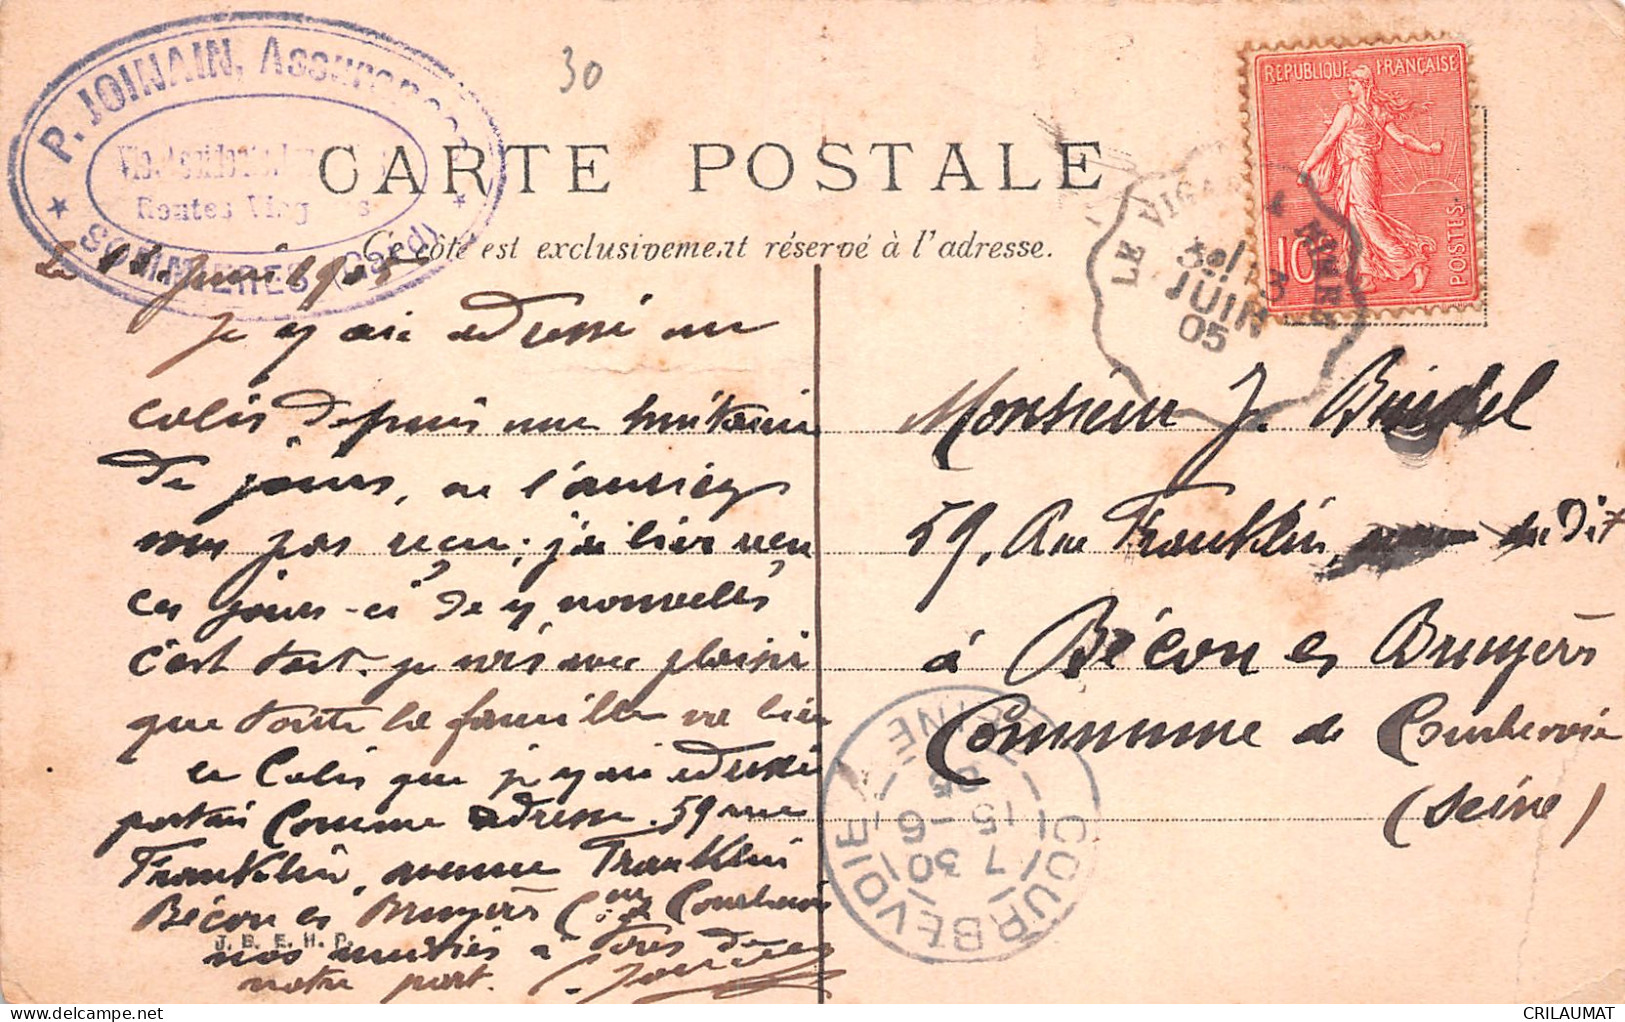 P. JOUJAIN, Assurances
Vie. Accidents. In
Rentes Viag s
SOMMIERES (Gard)
30
CARTE POSTALE
Ce côté est exclusivement réservé à l'adresse.
REPUBLIQUE FRANÇAISE
10
POSTES.
LE VIGAN
JUIN
05
Juin 1905
Je y ai adressé un
colis depuis une huitaine
de jours, ne l'auriez
vous pas reçu; j'ai bien reçu
ces jours-ci de y nouvelles
c'est tout. je vois avec plaisir
que toute la famille va bien
le Colis que j'y ai adressé
portait Comme adresse. 59 rue
Franklin, avenue Franklin
Bécon les Bruyères Cne de Courbevoie
nos amitiés à tous de
notre part.
J. B. E. H. P.
Monsieur J. Bindel
59, Rue Franklin, au dit
à Bécon les Bruyères
Commune de Courbevoie
(Seine)
COURBEVOIE SEINE
7 30
15 - 6
05
CRILAUMAT